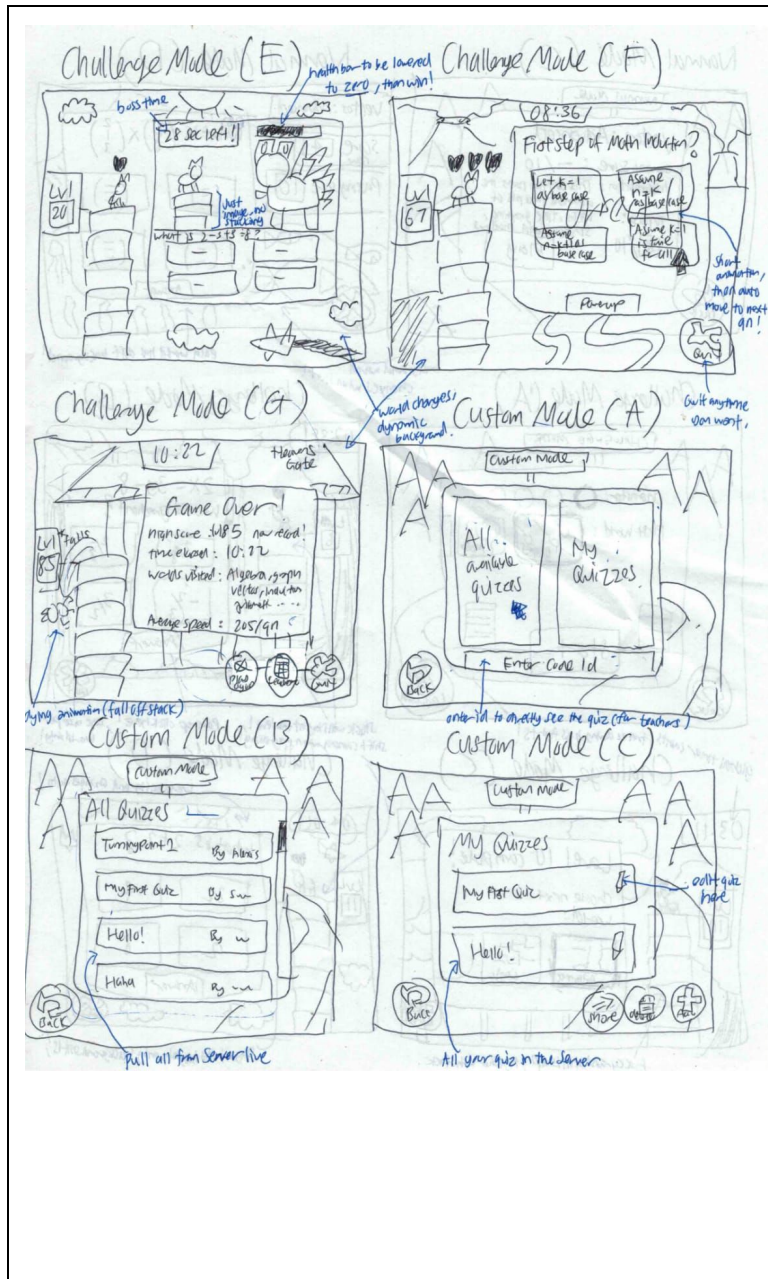 Challenge Mode (E)
health bar to be lowered
to zero, then win!
boss time
28 sec left!
Lvl
20
Just
image, no
stacking
Challenge Mode (F)
08:36
First step of Math Induction?
Let k=1
as base case
Assume
n=k
as base case
Assume
n=k+1 as
base case
Assume k=1
is true
for all
Lvl
67
Powerup
Quit
short
animation,
then auto
move to next
qn!
Quit anytime
you want.
world changes,
dynamic
background.
Challenge Mode (G)
10:22
Heavens
Gate
Game Over!
High score: lvl 85 new record!
time elapsed: 10:22
Worlds visited: Algebra, graph
vector, induction
Average speed: 20s/qn
Lvl
85
*falls
Quit
dying animation (fall off stack)
Custom Mode (A)
Custom Mode
All
available
quizzes
My
Quizzes
Enter Code Id
Back
enter id to directly see the quiz (for teachers)
Custom Mode (B
Custom Mode
All Quizzes
By Alexis
My First Quiz
By
Hello!
By
Haha
By
Back
Pull all from Server live
Custom Mode (C)
Custom Mode
My Quizzes
My First Quiz
Hello!
edit quiz
here
Back
Share
delete
Add
All your quiz in the server